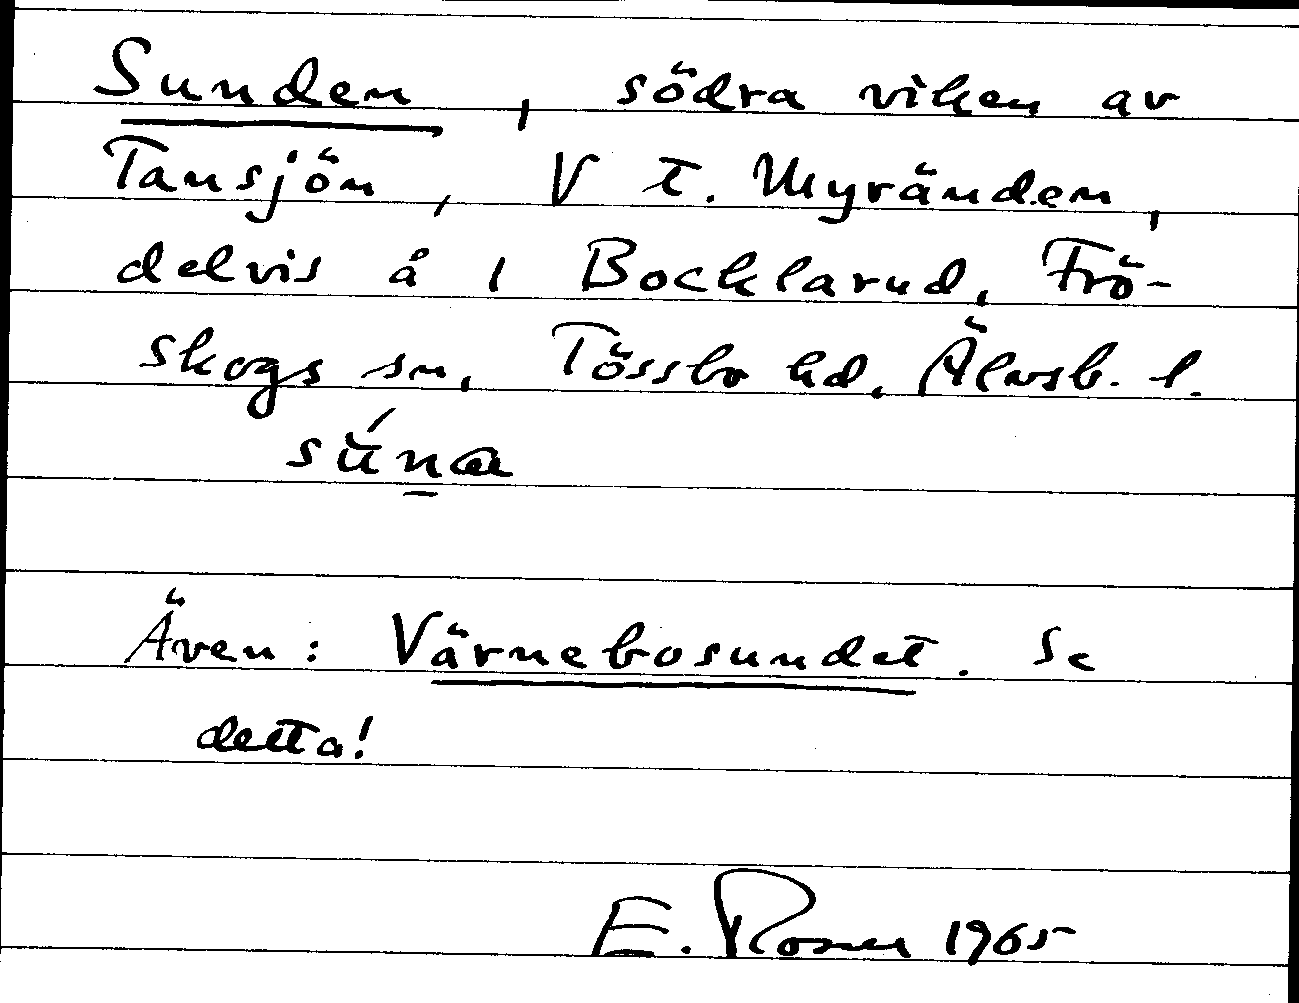 Sunden, södra viken av
Tansjön, V t. Myränden,
delvis å 1 Bocklarud, Frö-
skogs sn, Tössbo hd, Älvsb. l.
sǘna
Även: Värnebosundet. Se
detta!
E. Rosen 1965